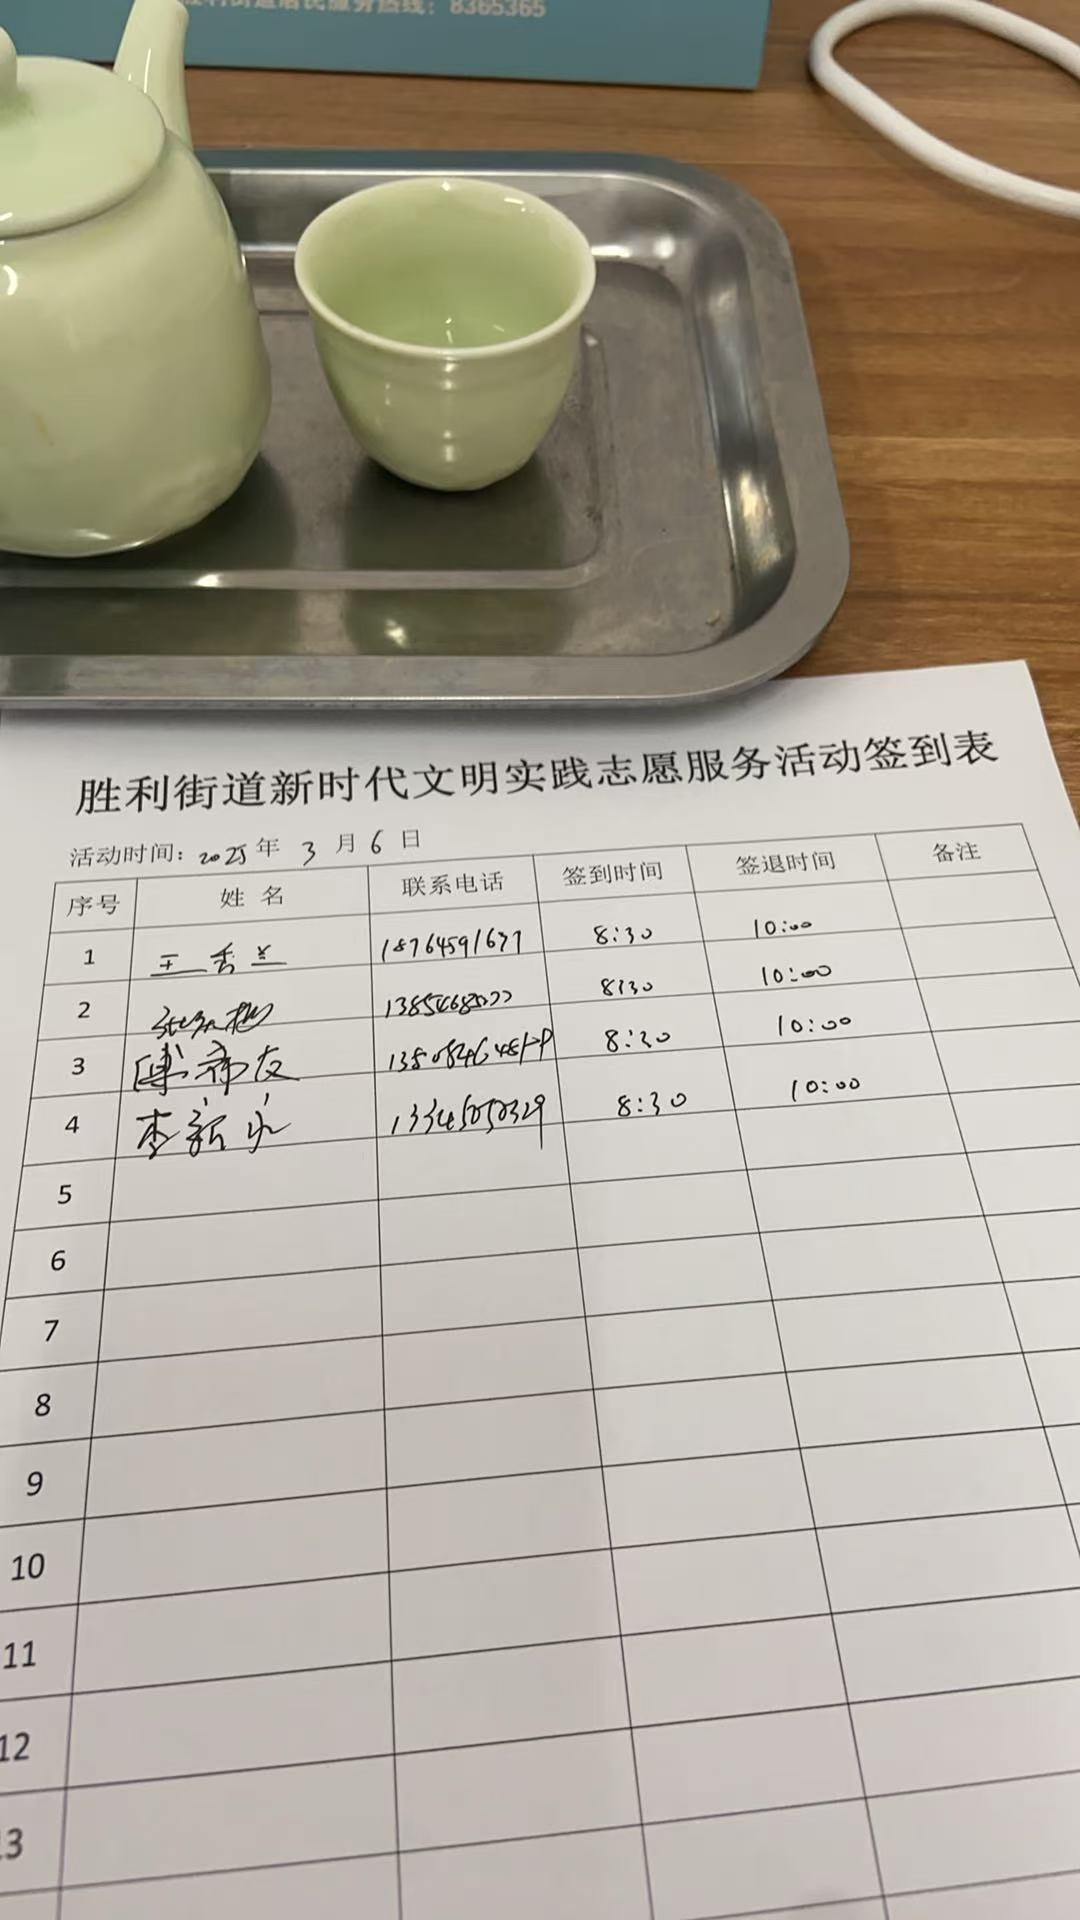 胜利街道居民服务热线：8365365
胜利街道新时代文明实践志愿服务活动签到表
活动时间：2025年 3 月 6 日
序号 姓 名 联系电话 签到时间 签退时间 备注
1 王秀兰 18764591677 8:30 10:00
2 8:30 10:00
3 友 8:30 10:00
4 李新 8:30 10:00
5
6
7
8
9
10
11
12
13